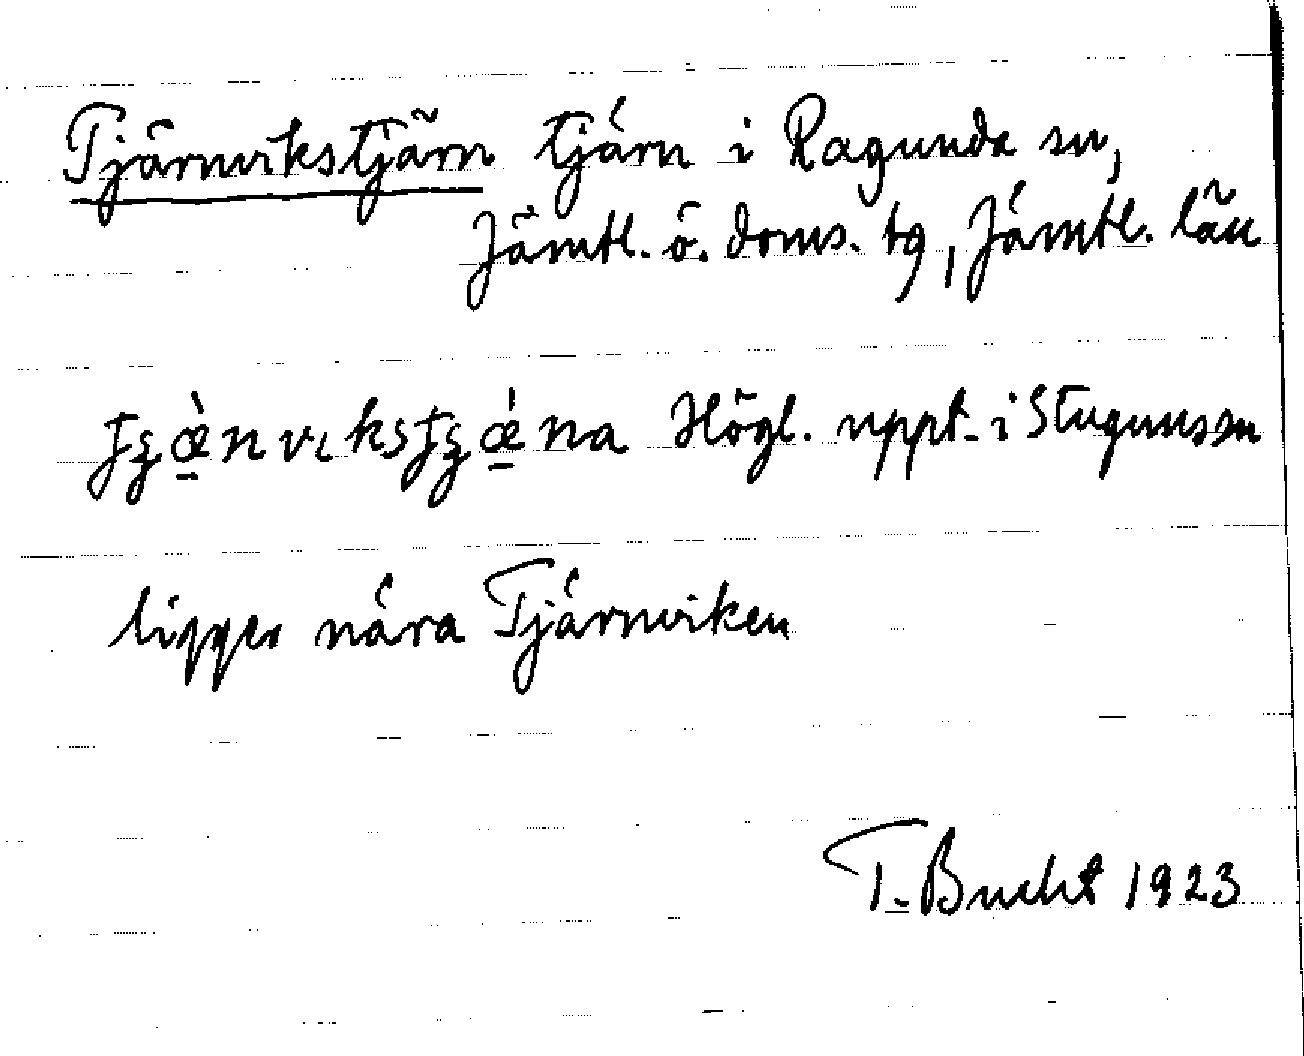 Tjärnvikstjärn tjärn i Ragunda sn,
Jämtl. ö. doms. tg, Jämtl. län
Högl. uppt. i Stuguns sn
ligger nära Tjärnviken
T. Bucht 1923